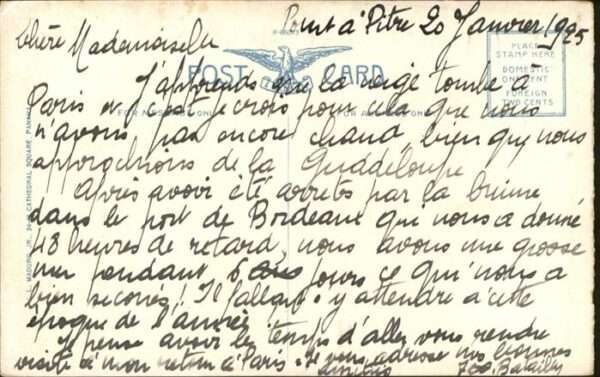 Point à Pitre 20 Janvier 1925
Chère Mademoiselle
POST CARD
PLACE
STAMP HERE
DOMESTIC
ONE CENT
FOREIGN
TWO CENTS
J'apprends que la neige tombe à
Paris et c'est je crois pour cela que nous
n'avons pas encore chaud bien que nous
approchions de la Guadeloupe
Après avoir été arretés par la brume
dans le port de Bordeaux qui nous a donné
48 heures de retard, nous avons une grosse
mer pendant 6 jours ce qui nous a
bien secoués! Il fallait s'y attendre à cette
époque de l'année
Je pense avoir le temps d'aller vous rendre
visite à mon retour à Paris. Je vous adresse nos bonnes
amitiés
CATHEDRAL SQUARE